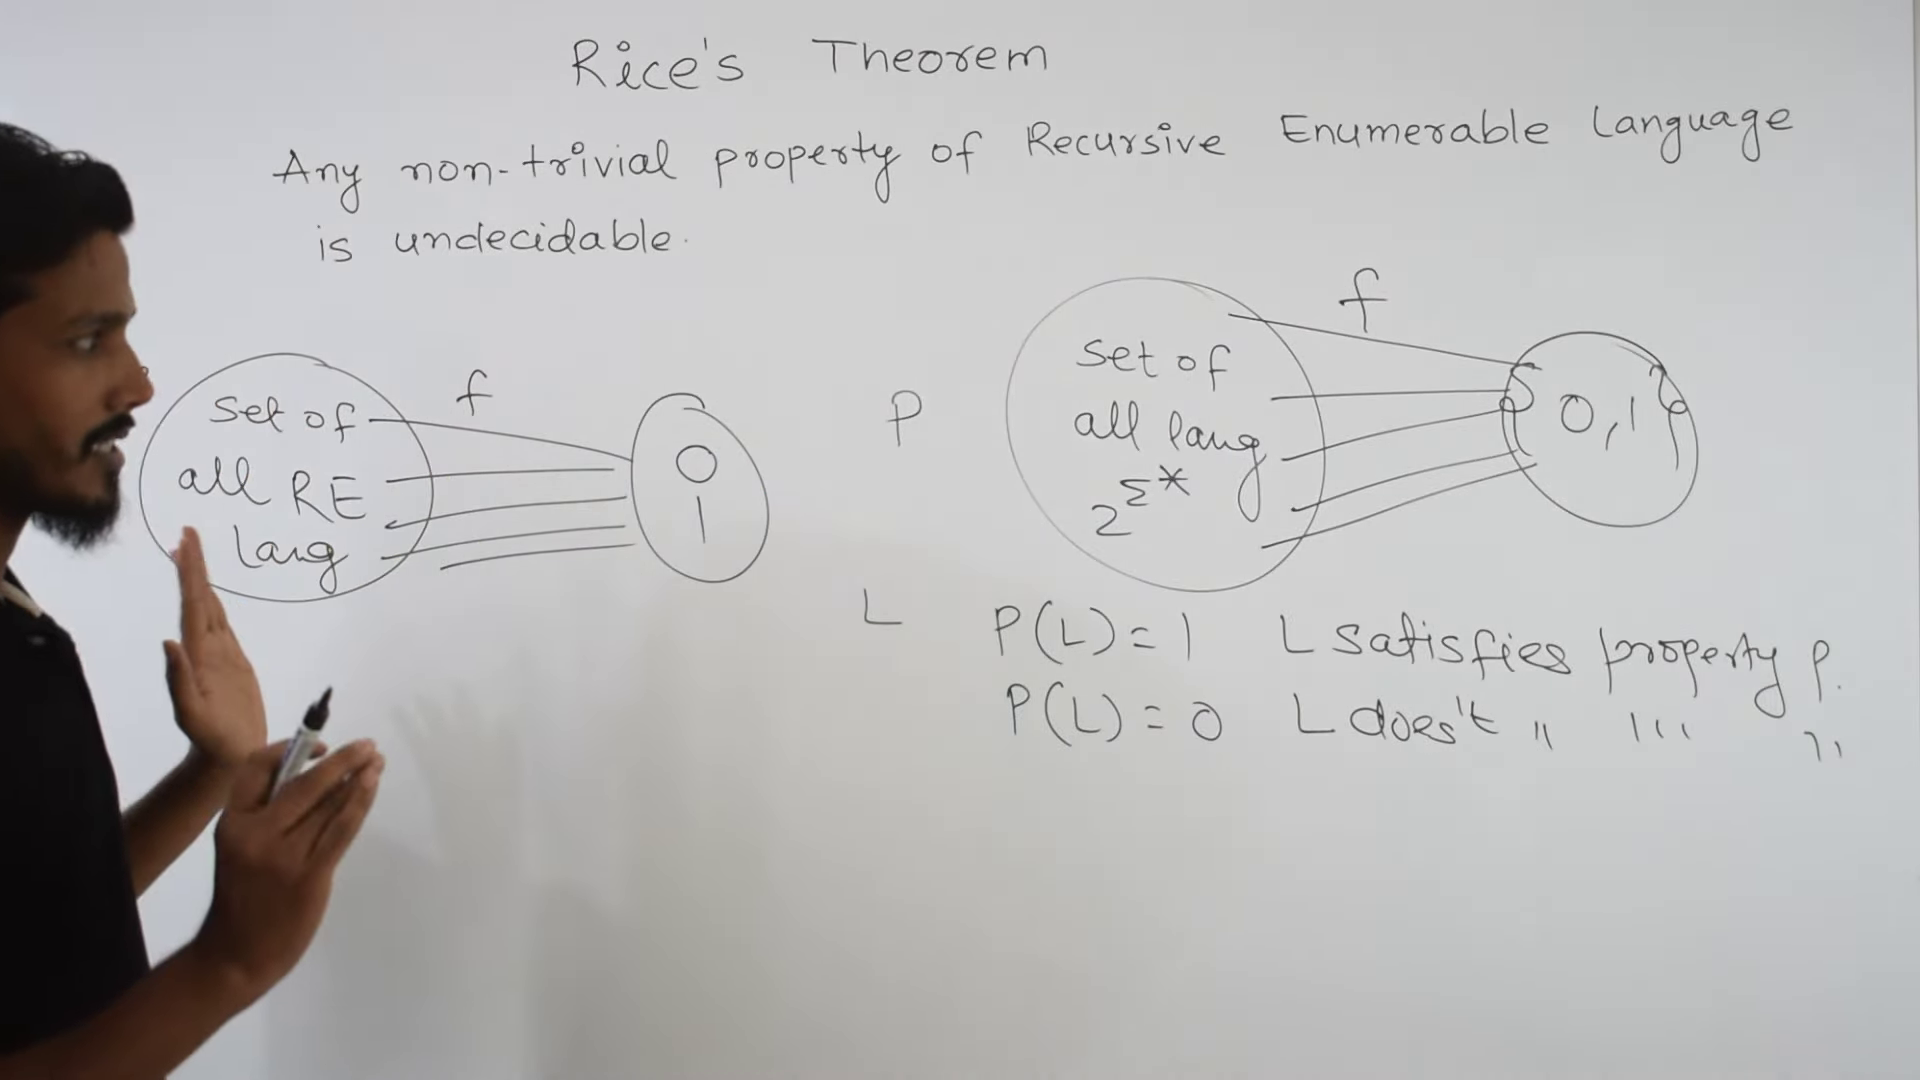 Rice's Theorem
Any non-trivial property of Recursive Enumerable Language
is undecidable.
Set of
all RE
Lang
f
0
1
P
Set of
all lang
2^Σ*
f
0,1
L
P(L) = 1 L satisfies property P.
P(L) = 0 L does't " ''' "